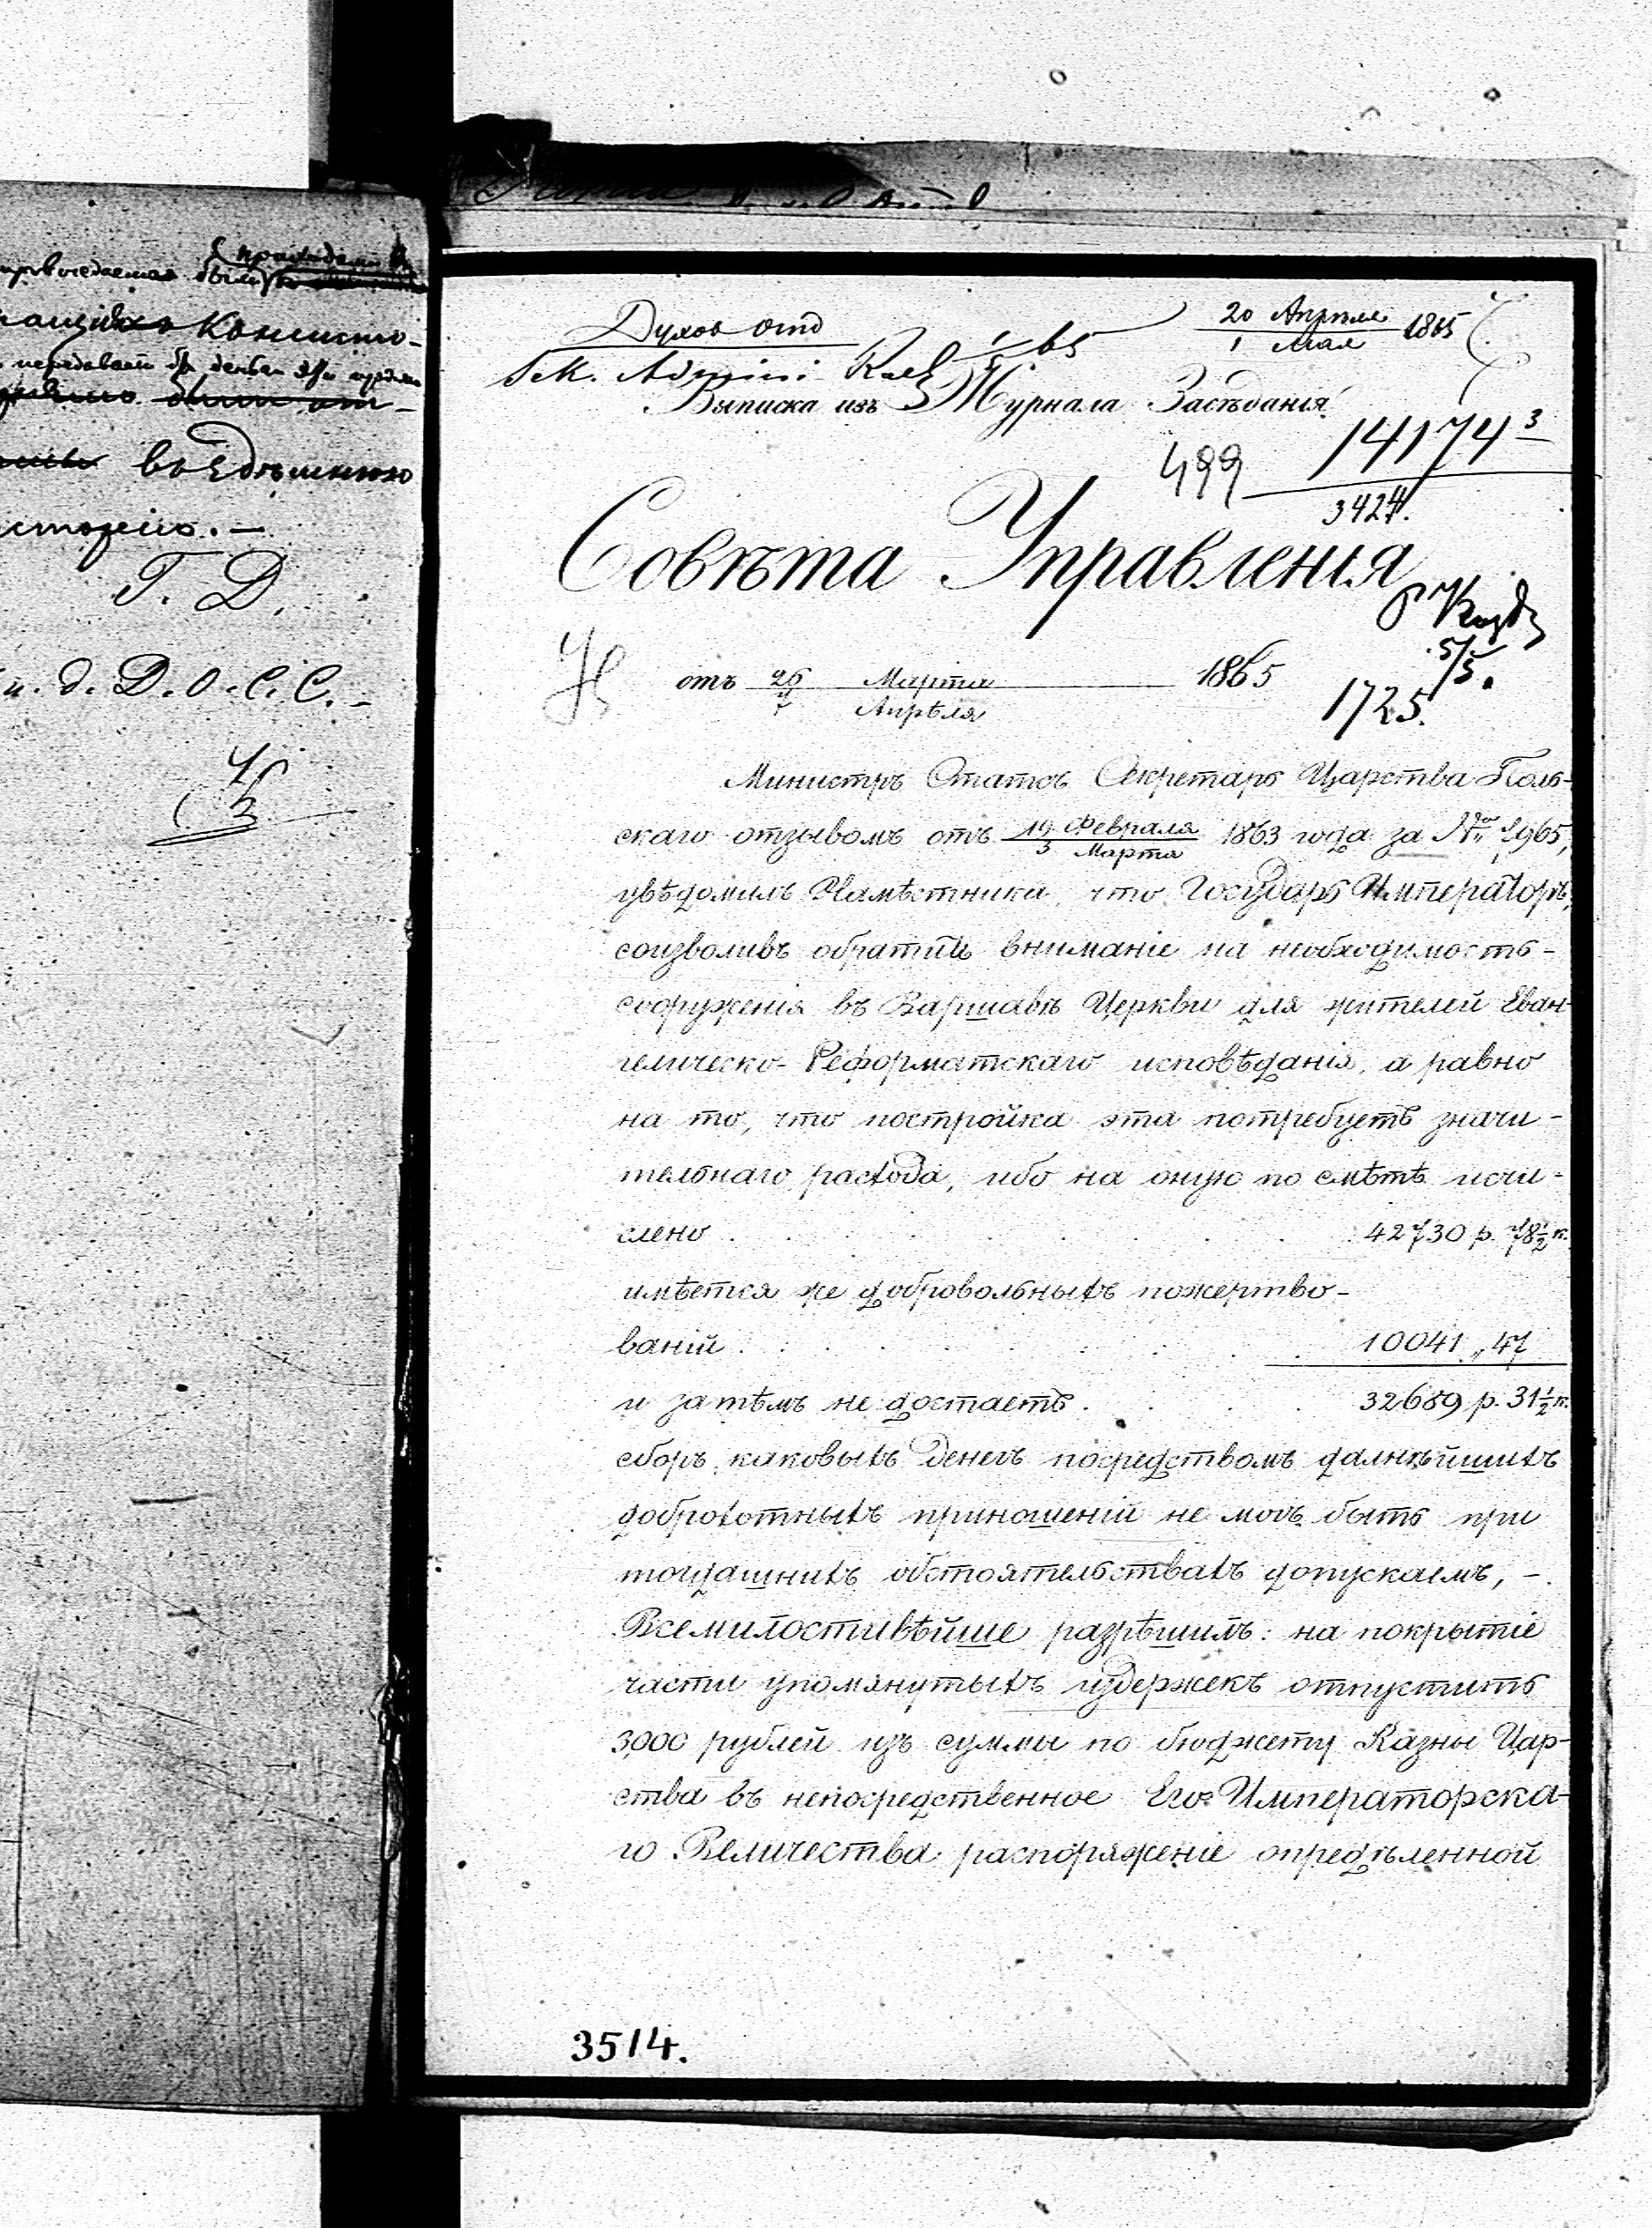 Консисто-
въ Едѣшнюю
Г. Д.
и. д. Д. О. С. С.
Духов отд
20 Апрѣля 1865
1 Мая
Выписка изъ Журнала Засѣданія
499 14174 3
3424.
Совѣта Управленія
5/5.
отъ 26 Марта 1865
7 Апрѣля
1725.
Министръ Статсъ Секретарь Царства Поль-
скаго отзывомъ отъ 19 Февраля 1863 года за № 1965,
3 Марта
увѣдомилъ Намѣстника, что Государь Императоръ,
соизволивъ обратить вниманіе на необходимость
сооруженія въ Варшавѣ Церкви для жителей Еван-
гелическо-Реформатскаго исповѣданія, а равно
на то, что постройка эта потребуетъ значи-
тельнаго расхода, ибо на оную по смѣтѣ исчи-
слено . . . . . . . . 42730 р. 78½ к.
имѣется же добровольныхъ пожертво-
ваній . . . . . . . . 10041 „ 47
и затѣмъ не достаетъ . . . . 32689 р. 31½ к.
сборъ каковыхъ денегъ посредствомъ далнѣйшихъ
доброхотныхъ приношеній не могъ быть при
тогдашнихъ обстоятельствахъ допускаемъ, –
Всемилостивѣйше разрѣшилъ: на покрытіе
части упомянутыхъ издержекъ отпустить
3,000 рублей изъ суммы по бюджету Казны Цар-
ства въ непосредственное Его Императорска-
го Величества распоряженіе опредѣленной
3514.